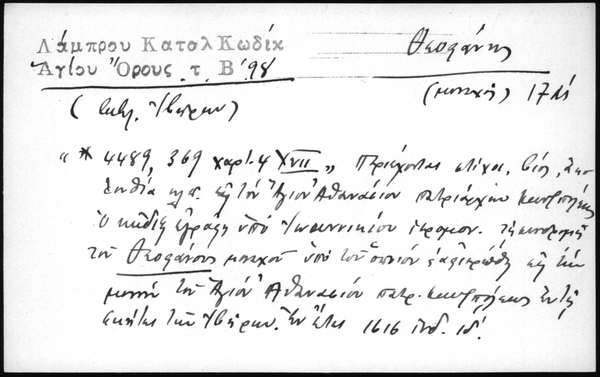 Λάμπρου Καταλ Κωδίκ
Ἁγίου Ὄρους τ. Β΄ 98
Θεοφάνης
(μοναχός) 17 αἰ
(βιβλ. Ἰβήρων)
"* 4489, 369 χαρτ. 4 XVII „ Περιέχονται στίχοι, βίος, ἀκο-
λουθία κλπ. εἰς τὸν Ἅγιον Ἀθανάσιον πατριάρχην Κωνσ/πόλεως
Ὁ κώδιξ ἐγράφη ὑπὸ Ἰωαννικίου ἱερομον. τῇ συνδρομῇ
τοῦ Θεοφάνους μοναχοῦ ὑπὸ τοῦ ὁποίου ἀφιερώθη εἰς τὴν
μονὴν τοῦ Ἁγίου Ἀθανασίου πατρ. Κωνσ/πόλεως ἐντὸς
σκήτης τῶν Ἰβήρων. Ἐν ἔτει 1616 ἰνδ. ιδ΄.